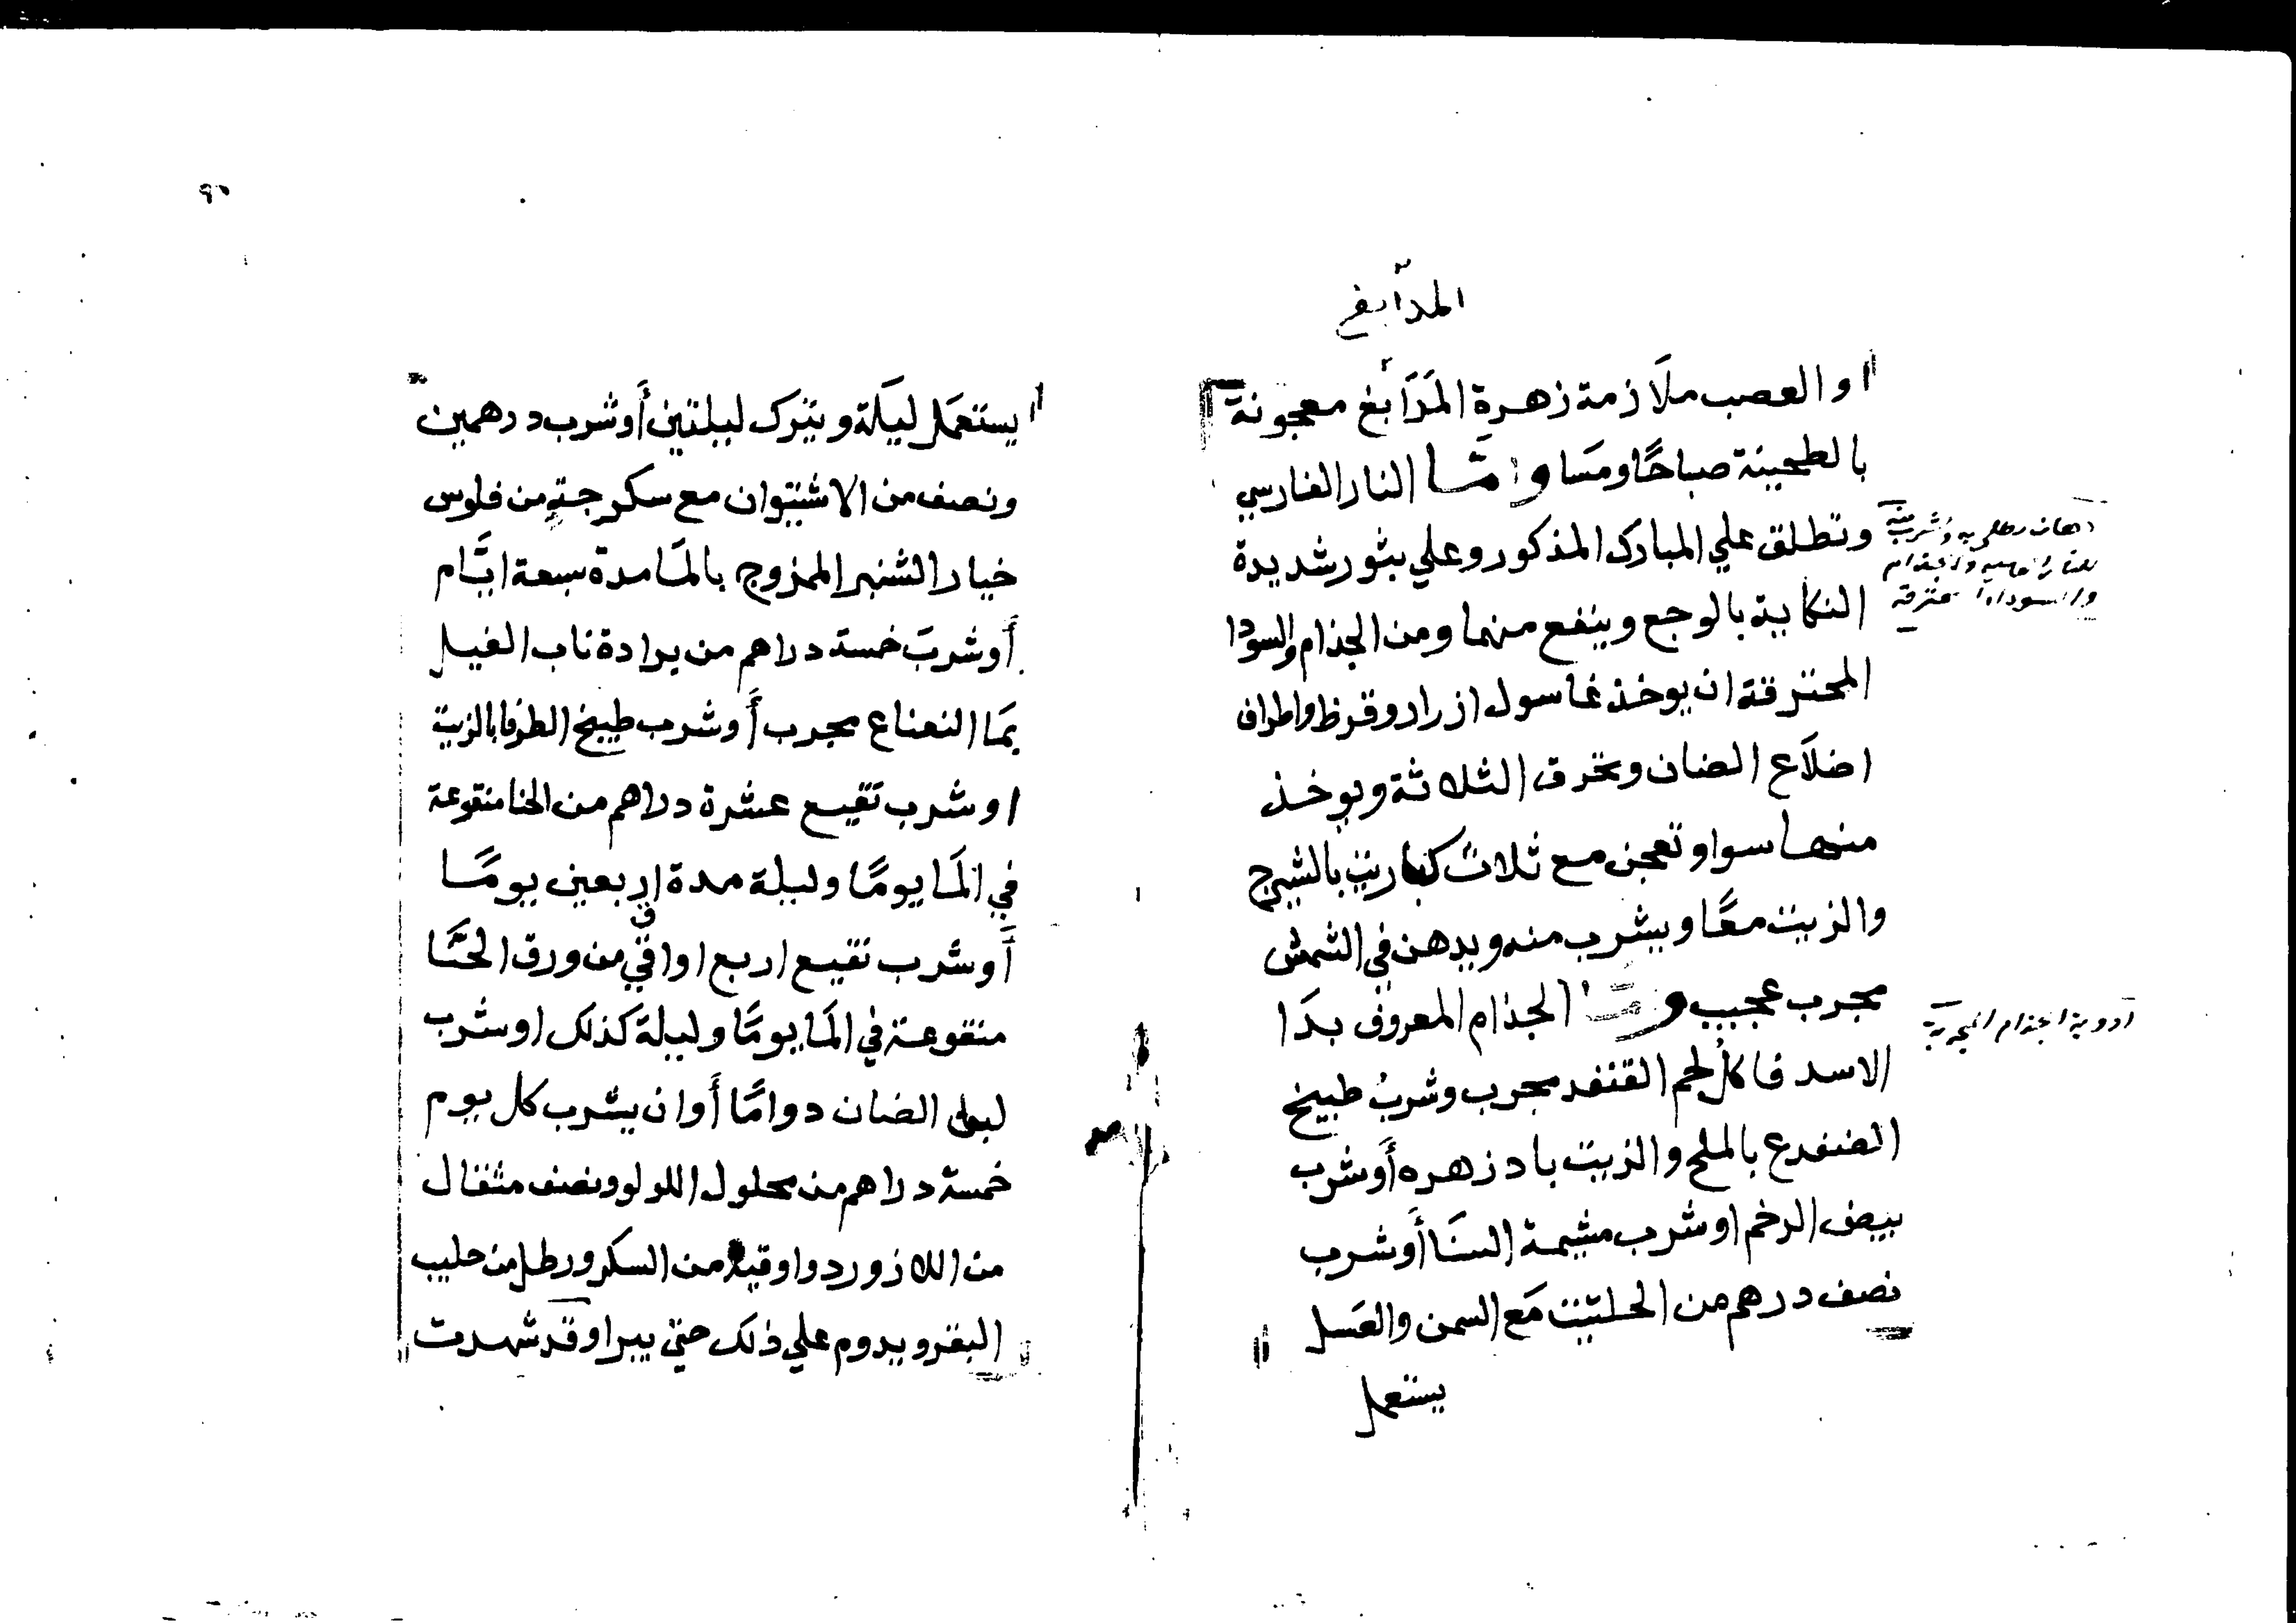 المدابغ
او العصب ملَازمة زهرة المَدَابغ معجونة
بالطحينة صباحًا ومسا واما النار الفارسي
وتطلق علي المبارك المذكور وعلي بثور شديدة
النكاية بالوجع وينفع منهما ومن الجذام والسودا
المحترقة ان يوخذ غاسول ازرار وقرظ واطراف
اضلَاع الضان وتحرق الثلاثة ويوخذ
منها سوا وتعجن مع ثلاث كباريت بالشيرج
والزيت معًا ويشرب منه ويدهن في الشمش
مجرب عجيب واما الجذام المعروف بدَا
الاسد فاكل لحم القنفد مجرب وشربُ طبيخ
الضفدع بالملح والزيت بادزهره أَوشرب
بيض الرخم اوشرب مشيمة النسَا أَوشرب
نصف درهم من الحلتيت مَع السمن والعَسل
يستعمل
ادوية الجذام المجربة
٩٠
يستعمَل ليَلة ويترك ليلتين أَوشرب درهمين
ونصف من الاشتيوان مع سكرجةٍ من فلوس
خيار الشنبر الممزوج بالمَا مدة سبعة ايَّام
أَوشربَ خمسة دراهم من برادة ناب الفيل
بمَا النعناع مجرب أَوشرب طبيخ الطرفا بالزيت
اوشرب نقيع عشرة دراهم من الحنا منقوعة
في المَا يومًا وليلة مدة اربعين يومًا
أَوشرب نقيع اربع اواقي من ورق الحنَّا
منقوعة في المَا يومًا وليلة كذلك اوشرب
لبن الضان دوامًا أَوان يشرب كل يوم
خمسة دراهم من محلول اللولو ونصف مثقال
من اللازورد واوقية من السكر ورطل من حليب
البقر ويدوم علي ذلك حتي يبرا وقد شهدت